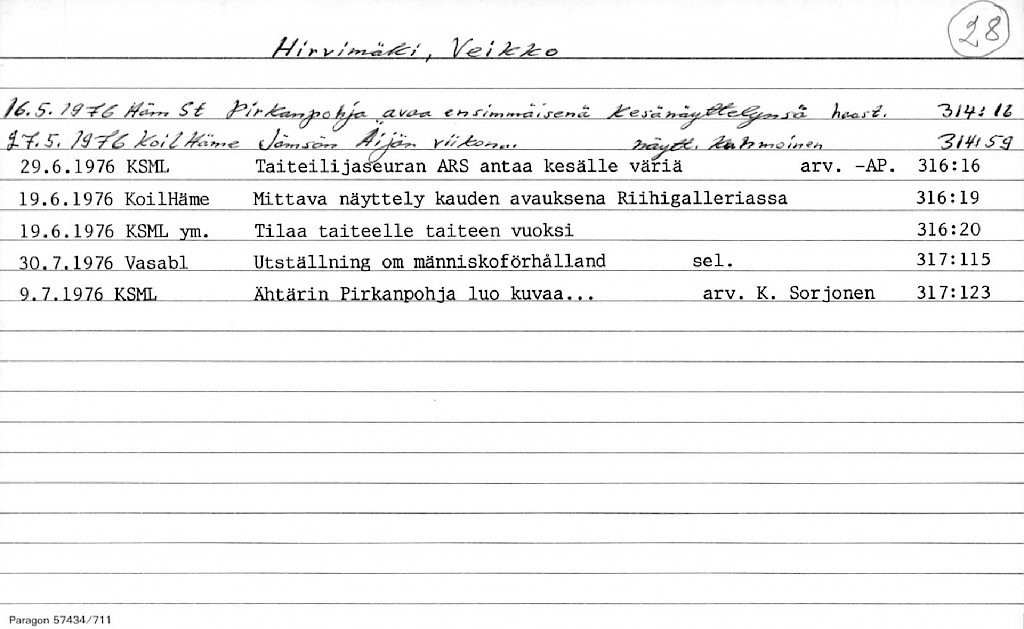 28
Hirvimäki, Veikko
16.5.1976 Häm St Pirkanpohja avaa ensimmäisenä kesänäyttelynsä haast. 314:16
27.5.1976 KoilHäme Jämsän Äijän viikon... näytt. Kuhmoinen 314:59
29.6.1976 KSML Taiteilijaseuran ARS antaa kesälle väriä arv. -AP. 316:16
19.6.1976 KoilHäme Mittava näyttely kauden avauksena Riihigalleriassa 316:19
19.6.1976 KSML ym. Tilaa taiteelle taiteen vuoksi 316:20
30.7.1976 Vasabl Utställning om människoförhålland sel. 317:115
9.7.1976 KSML Ähtärin Pirkanpohja luo kuvaa... arv. K. Sorjonen 317:123
Paragon 57434/711